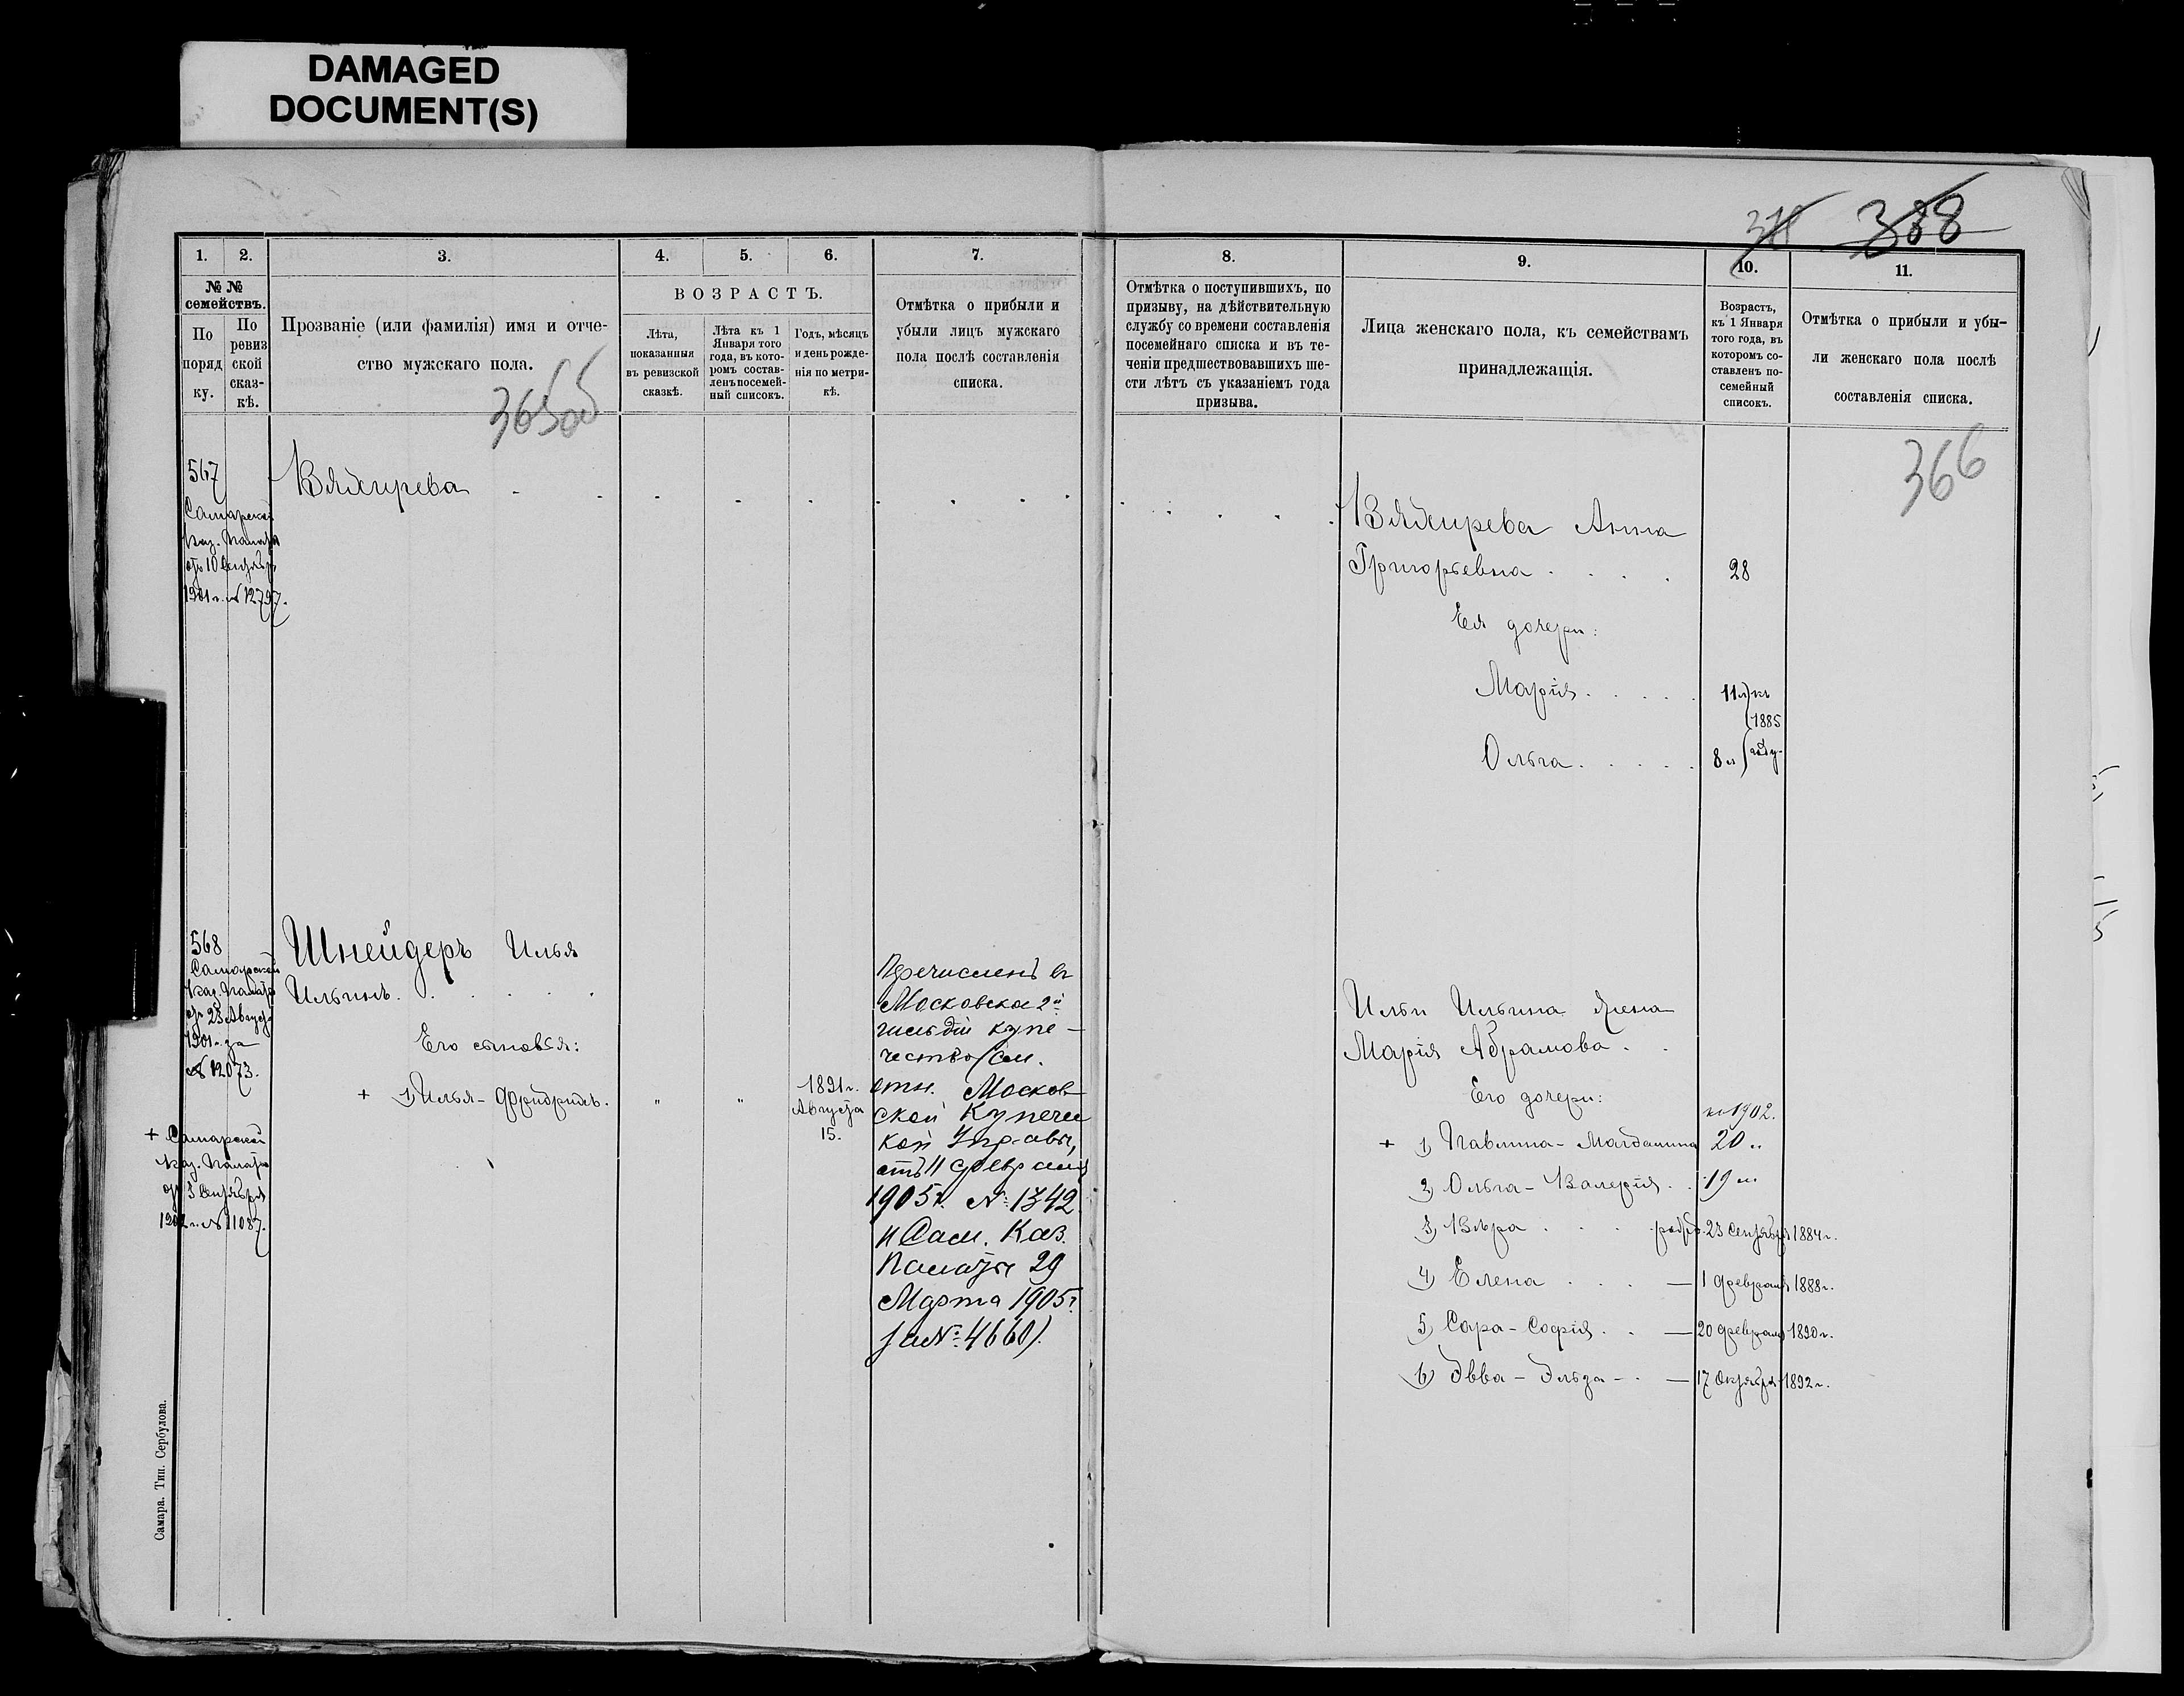 DAMAGED
DOCUMENT(S)
378 388
1.
2.
3.
4.
5.
6.
7.
№ №
семействъ.
По
поряд
ку.
По
ревиз
ской
сказ-
кѣ.
Прозваніе (или фамилія) имя и отче-
ство мужскаго пола.
365об
ВОЗРАСТЪ.
Лѣта,
показанныя
въ ревизской
сказкѣ.
Лѣта къ 1
Января того
года, въ кото-
ромъ состав-
ленъ посемей-
ный списокъ.
Годъ, мѣсяцъ
и день рожде-
нія по метри-
кѣ.
Отмѣтка о прибыли и
убыли лицъ мужскаго
пола послѣ составленія
списка.
8.
9.
10.
11.
Отмѣтка о поступившихъ, по
призыву, на дѣйствительную
службу со времени составленія
посемейнаго списка и въ те-
ченіи предшествовавшихъ ше-
сти лѣтъ съ указаніемъ года
призыва.
Лица женскаго пола, къ семействамъ
принадлежащія.
Возрастъ,
къ 1 Января
того года, въ
которомъ со-
ставленъ по-
семейный
списокъ.
Отмѣтка о прибыли и убы-
ли женскаго пола послѣ
составленія списка.
366
567
Самарской
Каз. Палаты
отъ 10 Сентября
1901 г. № 12797.
Вяхирева
Вяхирева Анна
Григорьевна 28
Ея дочери:
Марія 11 л. къ
1885
Ольга 8 л. году
568
Самарской
Каз. Палаты
отъ 23 Августа
1901 г. за
№ 12073.
Шнейдеръ Илья
Ильинъ.
Его сыновья:
+ 1) Илья-Фридрихъ. " "
1891 г.
Августа
15.
+ Самарской
Каз. Палаты
от 3 Сентября
1902 г. № 11087.
Перечисленъ въ
Московское 2й
гильдіи купе-
чество (см.
отн. Москов-
ской Купечес
кой Управы,
отъ 11 февраля
1905 г. №: 1342
и Сам. Каз.
Палаты 29
Марта 1905 г.
за №: 4660).
Ильи Ильина жена
Марія Абрамова.
Его дочери:
къ 1902.
+ 1) Павлина-Магдалина 20 л.
2) Ольга-Валерія. 19 л.
3) Вѣра родил. 23 Сентября 1884 г.
4) Елена — 1 Февраля 1888 г.
5) Сара-Софія. — 20 Февраля 1890 г.
6) Эвва-Эльза — 17 Октября 1892 г.
Самара. Тип. Сербулова.